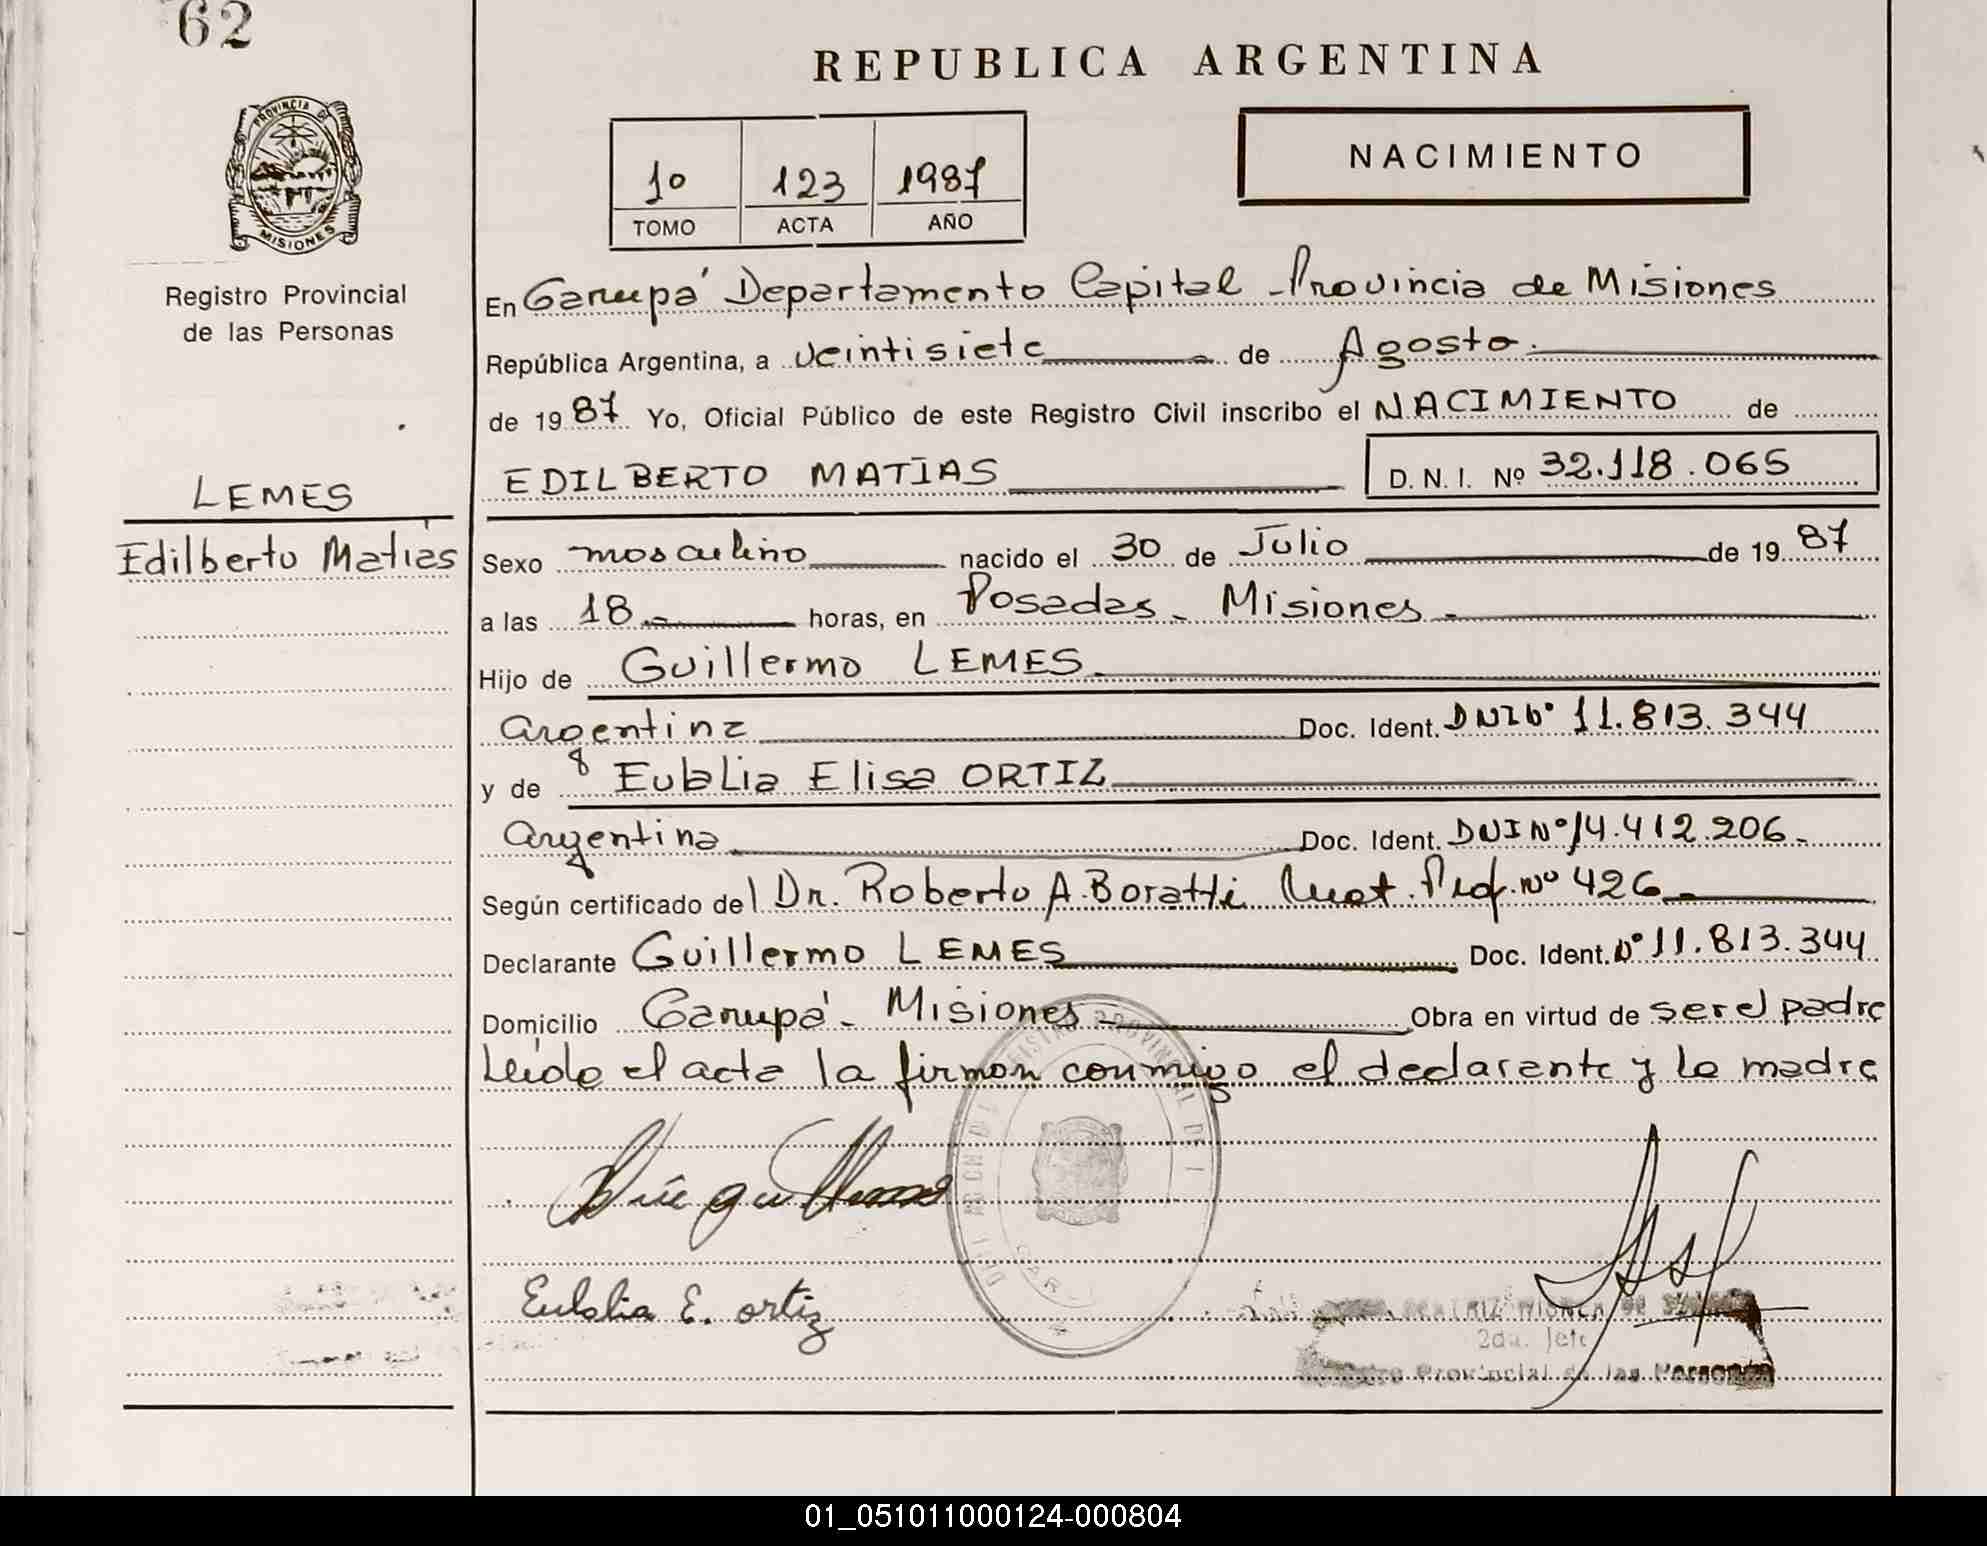 62
REPUBLICA ARGENTINA
PROVINCIA DE
MISIONES
Registro Provincial
de las Personas
1º 123 1987
TOMO ACTA AÑO
NACIMIENTO
En Garupá Departamento Capital - Provincia de Misiones
República Argentina, a veintisiete de Agosto.
de 1987 Yo, Oficial Público de este Registro Civil inscribo el NACIMIENTO de
EDILBERTO MATÍAS D. N. I. Nº 32.118.065
LEMES
Edilberto Matías
Sexo masculino nacido el 30 de Julio de 1987
a las 18 - horas, en Posadas - Misiones -
Hijo de Guillermo LEMES
Argentina Doc. Ident. DNI Nº 11.813.344
y de Eulalia Elisa ORTIZ
Argentina Doc. Ident. DNI Nº 14.412.206.-
Según certificado del Dr. Roberto A. Boratti Mat. Prof. Nº 426 -
Declarante Guillermo LEMES Doc. Ident. Nº 11.813.344
Domicilio Garupá - Misiones - Obra en virtud de ser el padre
Leída el acta la firman conmigo el declarante y la madre
Eulalia E. ortiz
BEATRIZ
2da. Jefe
Provincial de las Personas
01_051011000124-000804